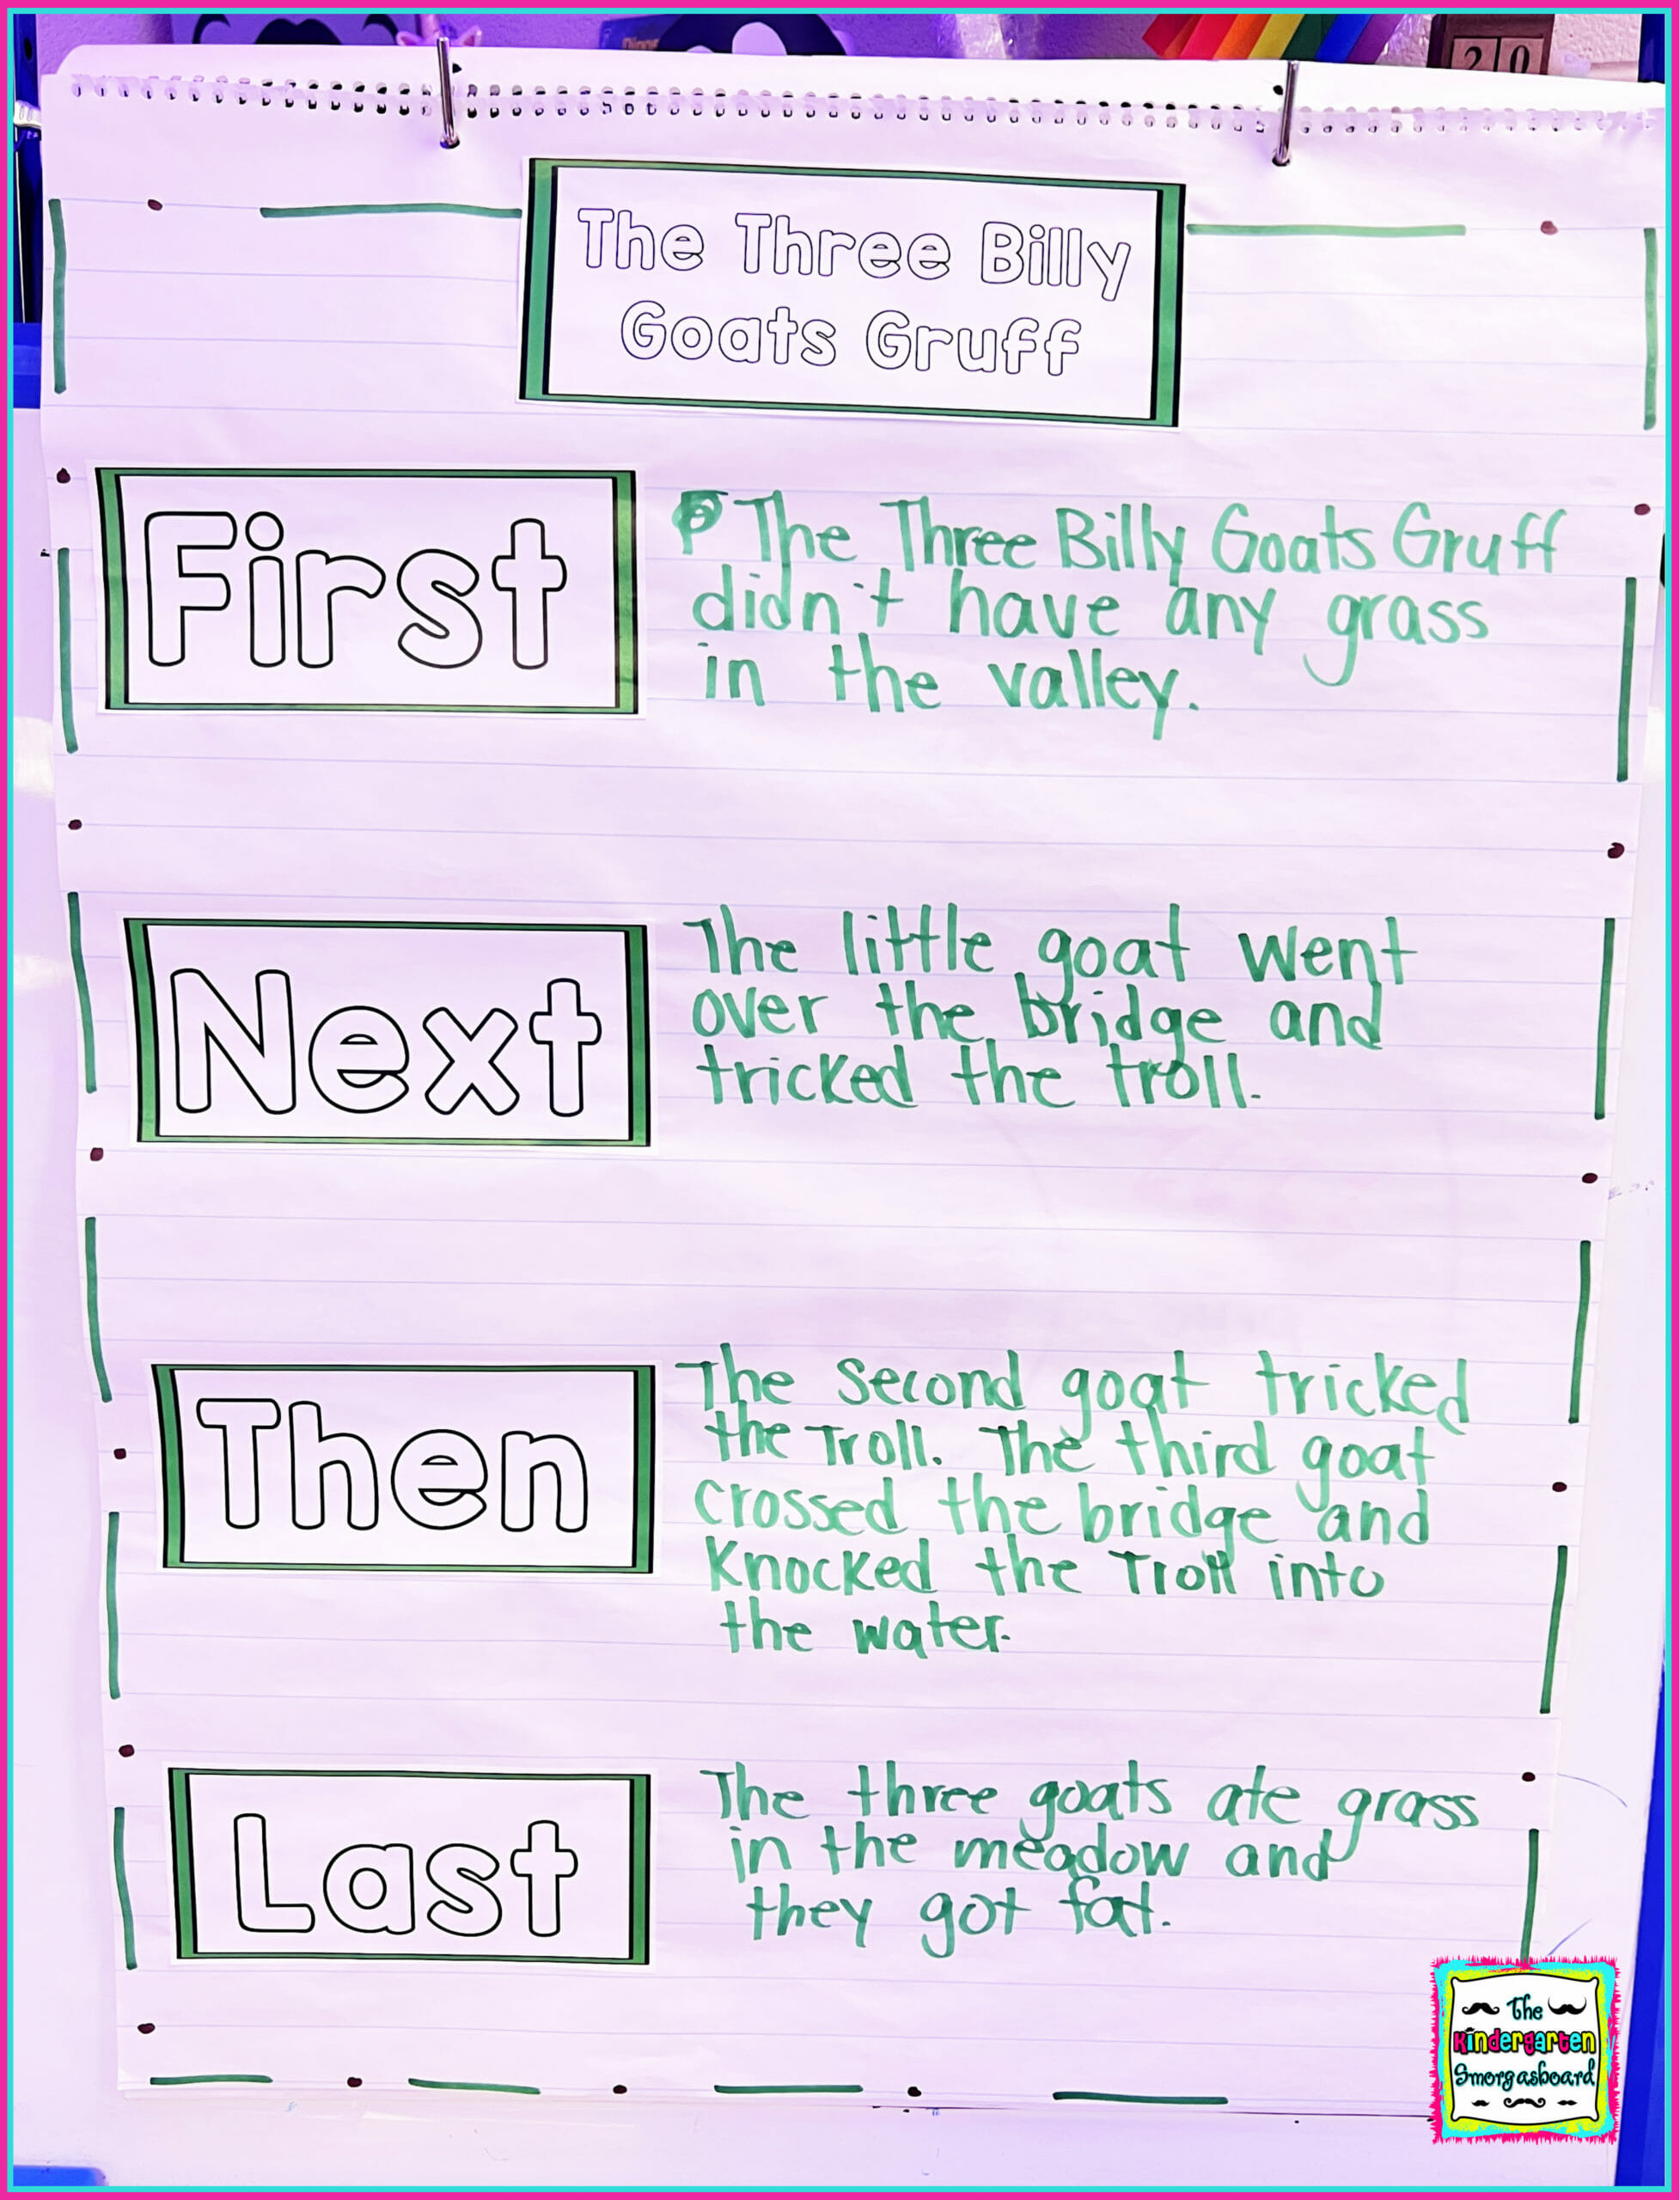 20
The Three Billy
Goats Gruff
First
The Three Billy Goats Gruff
didn't have any grass
in the valley.
Next
The little goat went
over the bridge and
tricked the troll.
Then
The second goat tricked
the Troll. The third goat
crossed the bridge and
Knocked the Troll into
the water.
Last
The three goats ate grass
in the meadow and
they got fat.
The
Kindergarten
Smorgasboard